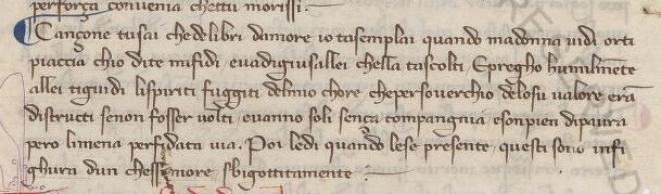 perforça conuenia chettu morissi .
Cançone tusai chedelibri damore io tasemplai quando madonna uidi orti
piaccia chio dite mifidi euadigiusallei chella tascolti Epregho humilmēte
allei tiguidi lispiriti fuggiti delmio chore chepersouerchio delosu ualore erā
distructi senon fosser uolti euanno soli sença compangnia esonpien dipaura
pero limena perfidata uia . Poi ledi quando lese presente questi sono infi
ghura dun chessimore sbigottitamente .